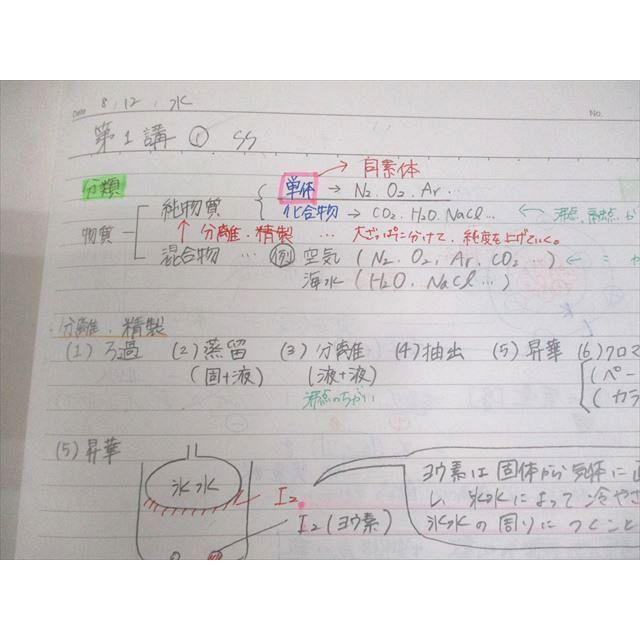 Date 8.12.水
No.
第1講 ① SS
同素体
分類 単体 → N2. O2. Ar...
純物質 化合物 → CO2. H2O. NaCl... ← 沸点、融点が
物質 ↑ 分離・精製 … 大ざっぱに分けて、純度を上げていく。
混合物 … 例 空気 (N2. O2, Ar, CO2 ...) ←
海水 (H2O. NaCl...)
・分離・精製
(1) ろ過 (2) 蒸留 (3) 分離 (4) 抽出 (5) 昇華 (6) クロマ
(固+液) (液+液) (ペー
沸点のちがい (カラ
(5) 昇華
氷水
I2
I2 (ヨウ素)
ヨウ素は固体から気体に
し、氷水によって冷やさ
氷水の周りにつくこと